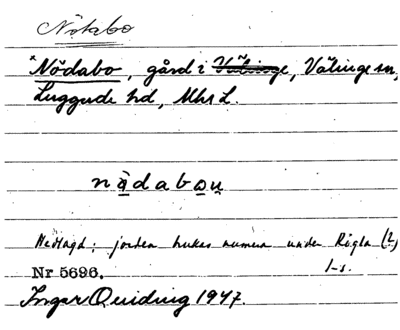 Nötabo
*Nödabo, gård i Välinge, Välinge sn,
Luggude hd, Mhs L.
nødabou̯
Nedlagd; jorden brukas numera under Rögla (?)
1-s.
Nr 5696.
Ingar Quiding 1947.